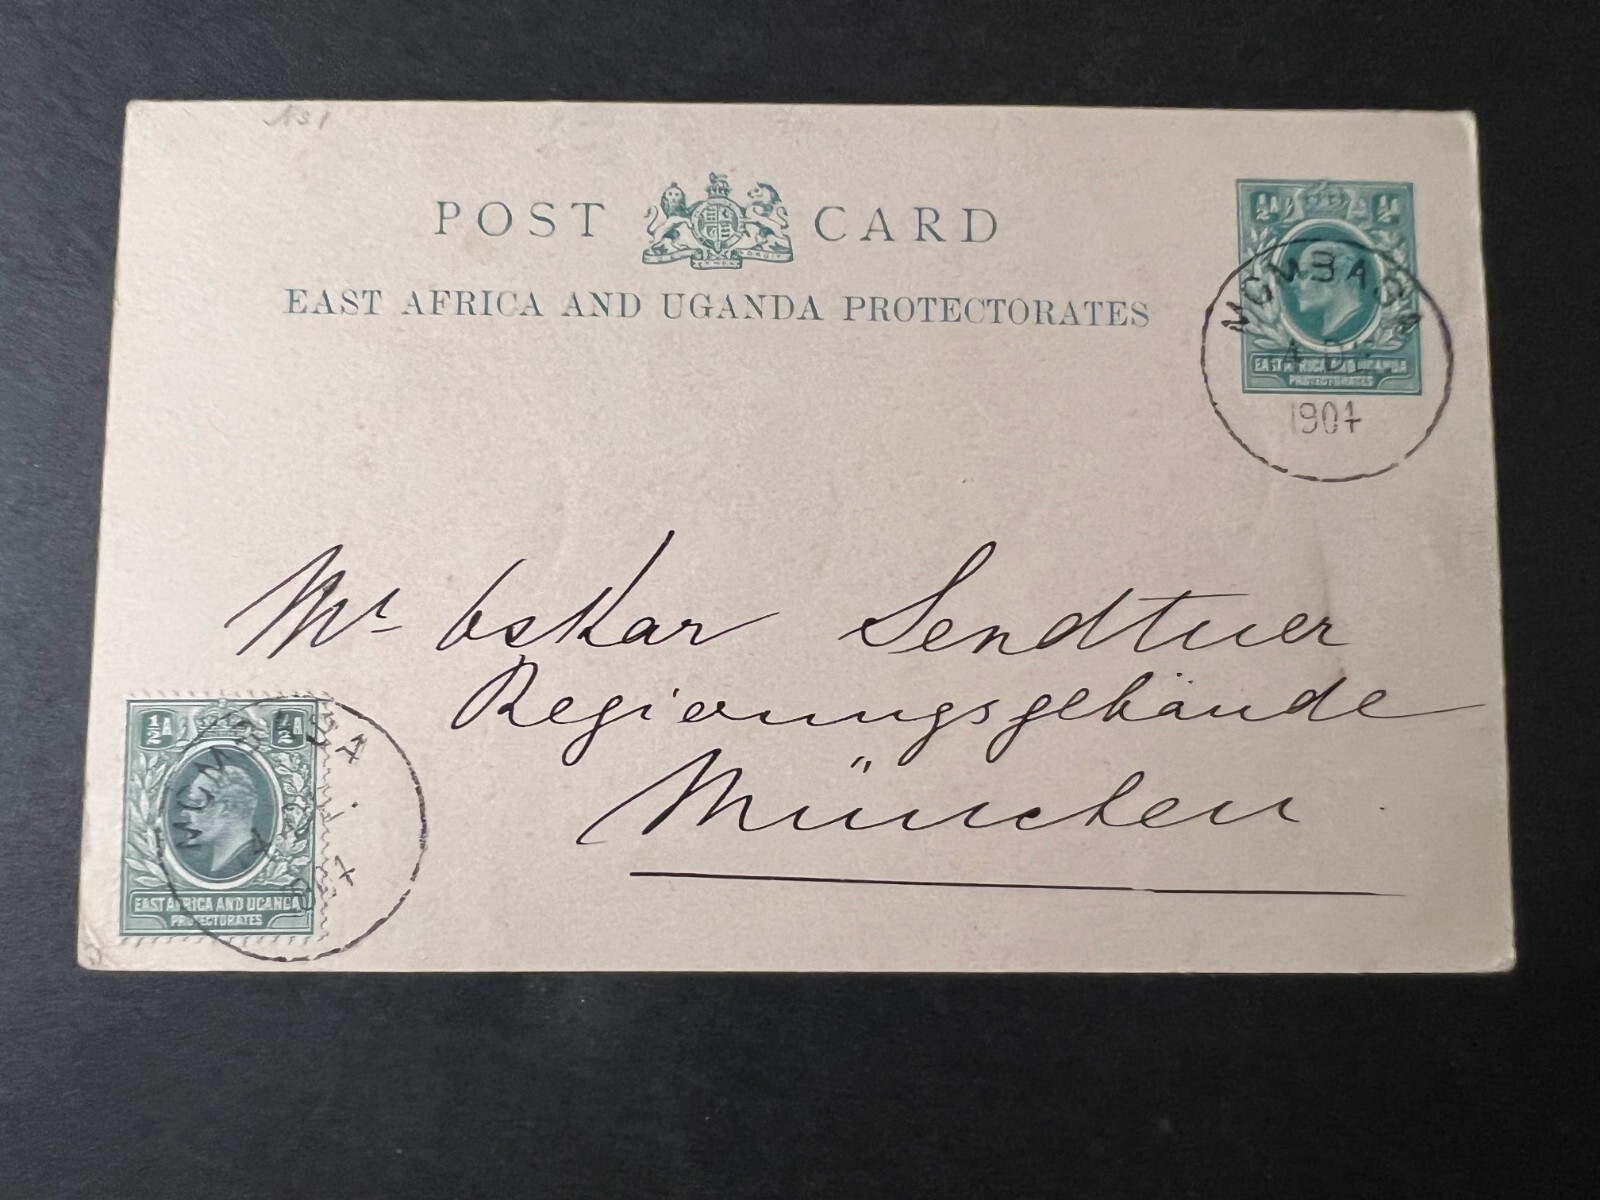 POST CARD
EAST AFRICA AND UGANDA PROTECTORATES
½A ½A
EAST AFRICA AND UGANDA
PROTECTORATES
MOMBASA
1907
Mr Oskar Sendtner
Regierungsgebäude
München
½A ½A
EAST AFRICA AND UGANDA
PROTECTORATES
MOMBASA